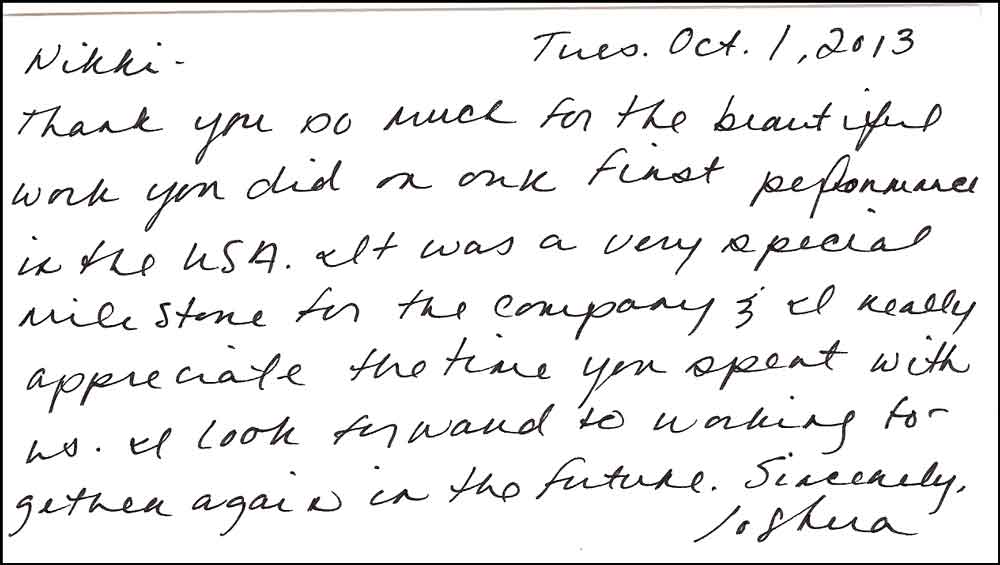 Tues. Oct. 1, 2013
Nikki -
Thank you so much for the beautiful
work you did on our first performance
in the USA. It was a very special
milestone for the company & I really
appreciate the time you spent with
us. I look forward to working to-
gether again in the future. Sincerely,
Joshua